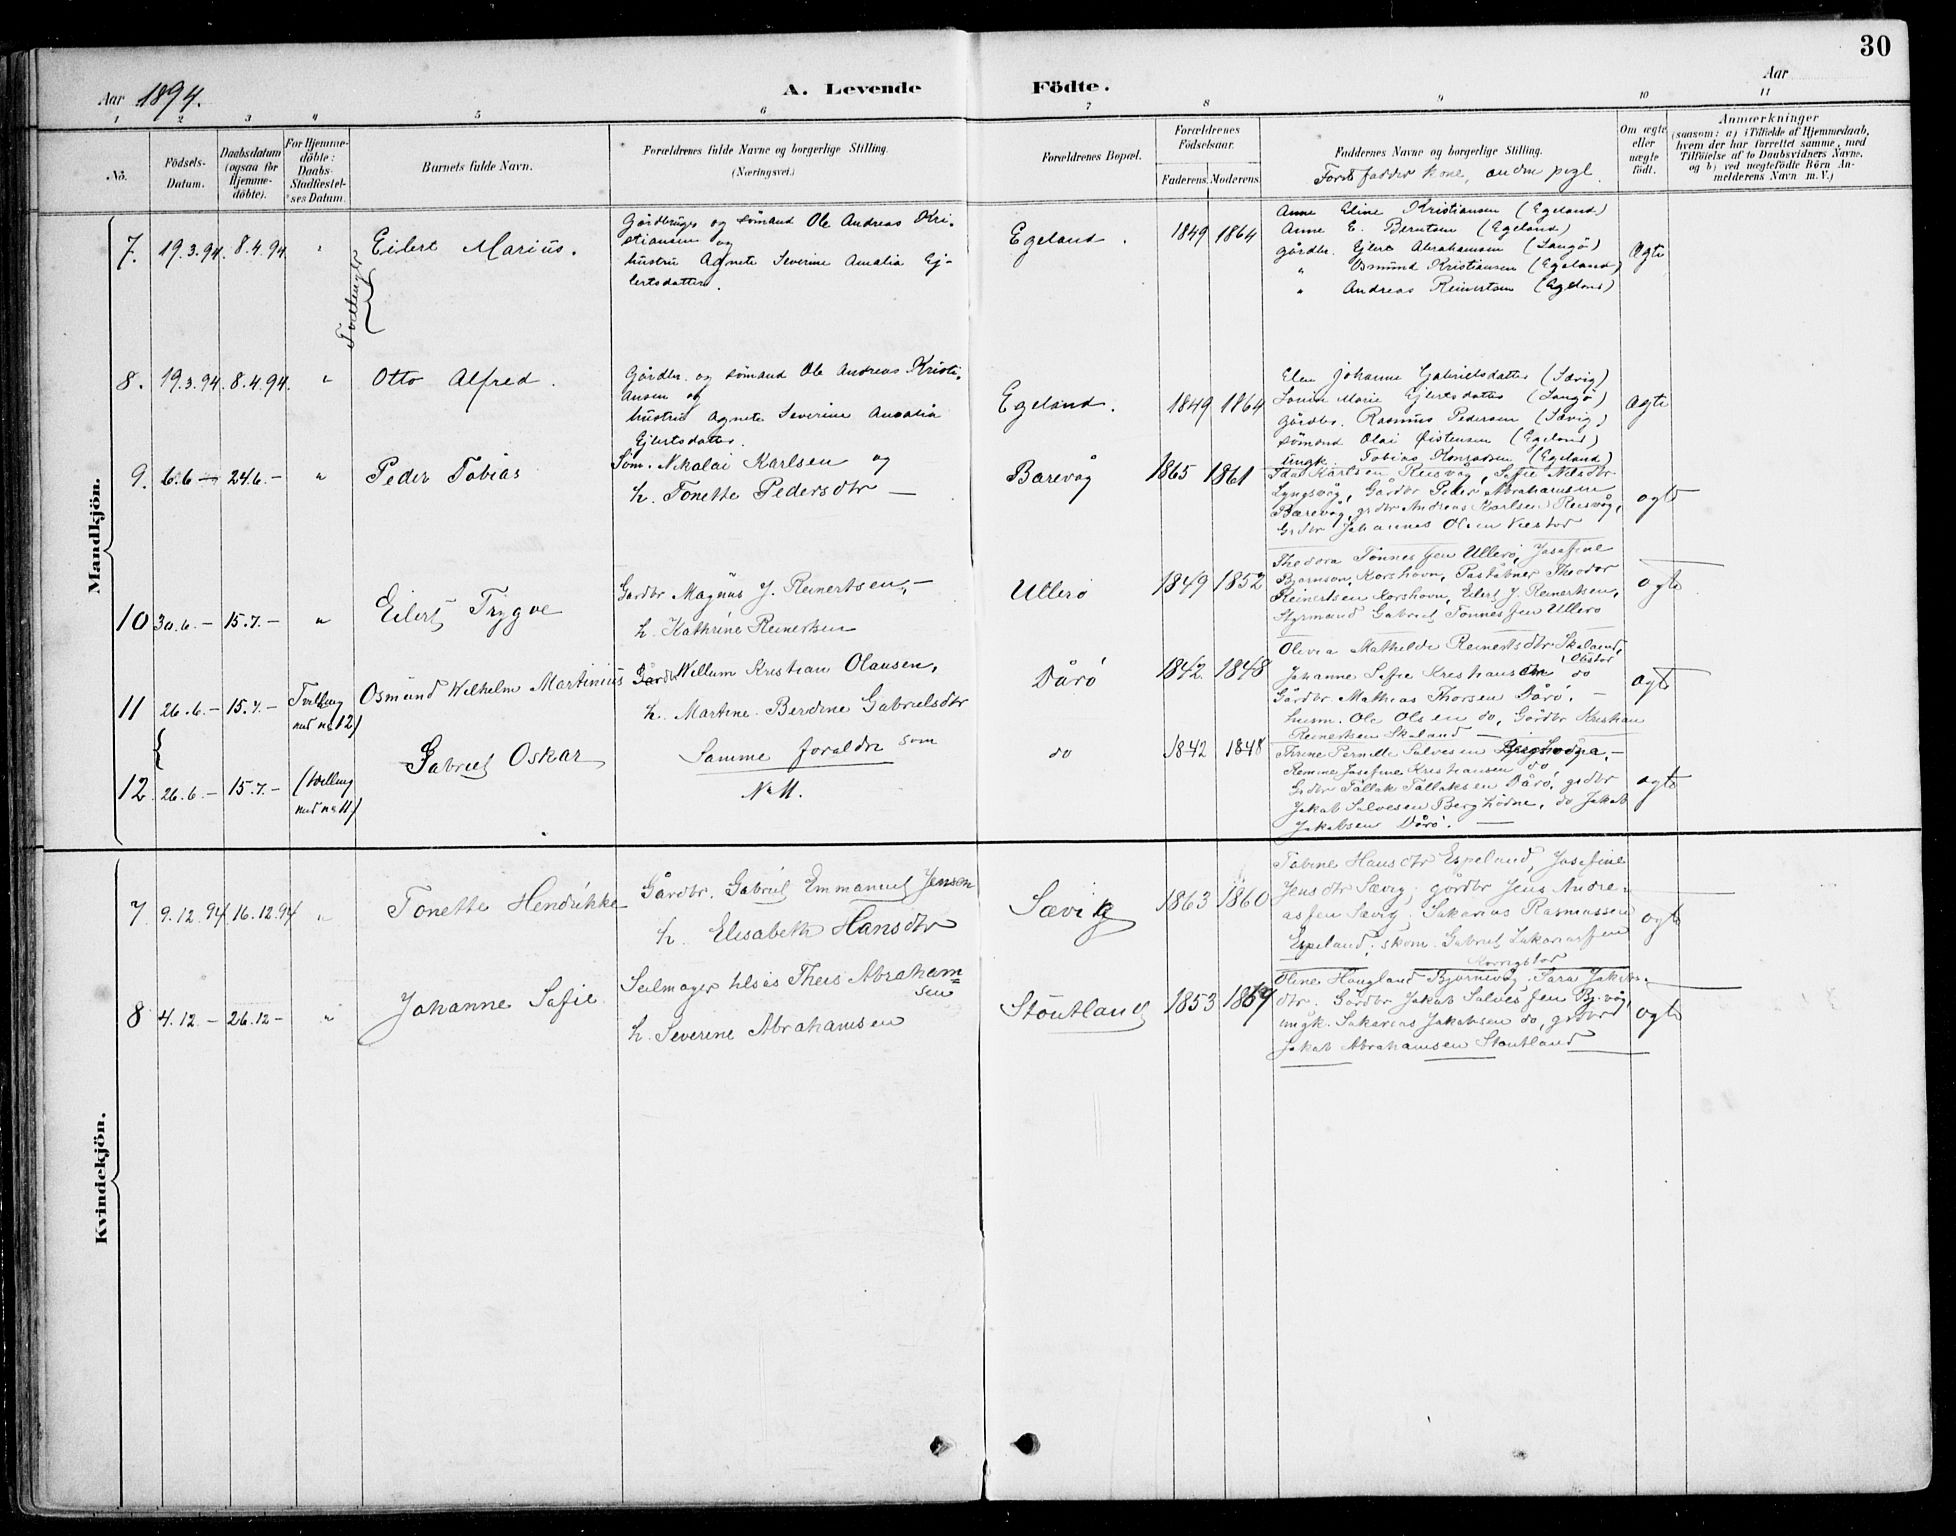 30
Aar 1894.
A. Levende Födte.
Aar
1 2 3 4 5 6 7 8 9 10 11
No.
Födsels-Datum.
Daabsdatum (ogsaa for Hjemmedöbte).
For Hjemmedöbte: Daabs-Stadfæstelses Datum.
Barnets fulde Navn.
Forældrenes fulde Navne og borgerlige Stilling. (Næringsvei.)
Forældrenes Bopæl.
Forældrenes Födselsaar.
Faderens. Moderens.
Faddernes Navne og borgerlige Stilling.
Om ægte eller uægte født.
Anmærkninger
(saasom: a) i Tilfælde af Hjemmedaab, hvem der har forrettet samme, med Tilföielse af to Daabsvidners Navne, og b) ved uægtefödte Börn Anmelderens Navn m. V.)
Mandkjön.
7. 19.3.94. 8.4.94. " Eilert Marius.
Tvillinger
Gårdbruger og sømand Ole Andreas Kri-
stiansen og
hustru Agnete Severine Amalia Ej-
lertsdatter.
Egeland. 1849 1864
Anne Eline Kristiansen (Egeland)
Anne E. Berntsen (Egeland)
gårdbr. Ejlert Abrahamsen (Langø)
" Osmund Kristiansen (Egeland)
" Andreas Reinertsen (Egeland)
Ægte
8. 19.3.94. 8.4.94. " Otto Alfred.
Gårdbr. og sømand Ole Andreas Kristi-
ansen og
hustru Agnete Severine Amalia
Ejlertsdatter.
Egeland. 1849 1864
Elen Johanne Gabrielsdatter (Sævig)
Marie Ejlertsdatter (Langø)
gårdbr. Rasmus Pedersen (Sævig)
sømand Olai Øistensen (Egeland)
ungk. Tobias Konradsen (Egeland)
Ægte
9. 6.6 - 24.6.- " Peder Tobias
Søm. Nikolai Karlsen og
h. Tonette Pedersdtr -
Barevåg 1865 1861
Karlsen Reesvåg, Sofie Nilsdtr
Lyngsvåg, Gårdbr Peder Abrahamsen
Barevåg, grdbr Andreas Karlsen Reesvåg,
Grdbr Johannes Olsen
ægte
10 30.6.- 15.7.- " Eilert Trygve
Gårdbr Magnus J. Reinertsen, -
h. Kathrine Reinertsen
Ullerø 1849 1852
Thedora Tønnessen Ullerø, Josefine
Bjørnson, Korshavn, Theodor
Reinertsen Korshavn, Eilert J. Reinertsen,
Styrmand Gabriel Tønnessen Ullerø
ægte
11 26.6.- 15.7.- Tvilling med no 12) Osmund Wilhelm Martinius
Willum Kristian Olausen,
h. Martine Berdine Gabrielsdtr
Dårø 1842 1848
Olivia Mathilde Reinertsdtr Skaland,
Johanne Sofie Kristiansen do
Gårdbr. Mathias Thorsen Dårø. -
husm. Ole Olsen do, Gårdbr Kristian
Reinertsen Skaland -
ægte
12 26.6.- 15.7.- (tvilling med no 11) Gabriel Oskar
Samme foraldre som
No 11.
do 1842 1848
Thrine Pernille Salvesen
Josefine Kristiansen do,
Grdbr Tallak Tallaksen Dårø, grdbr
Jakob Salvesen, do Jakob
Jakobsen Dårø. -
ægte
Kvindekjön.
7 9.12.94 16.12.94 " Tonette Hendrikke
Gårdbr. Gabriel Emmanuel Jensen
h. Elisabeth Hansdtr
Sævig 1863 1860
Tobine Hansdtr Espeland, Josefine
Jensdtr Sævig; gårdbr Jens Andre-
assen Sævig, Sakarias Rasmussen
Espeland, skom. Gabriel Zakariassen
ægte
8 4.12.- 26.12- " Johanne Sofie
Seilmager Theis Abraham-
sen
h. Severine Abrahamsen
Støutland 1853 1869
Oline Haugland Bjørnevåg, Sara Jakobs-
dtr. Gårdbr Jakob Salvessen Bj.våg,
ungk. Sakarias Jakobsen do, grdbr
Jakob Abrahamsen Støutland
ægte